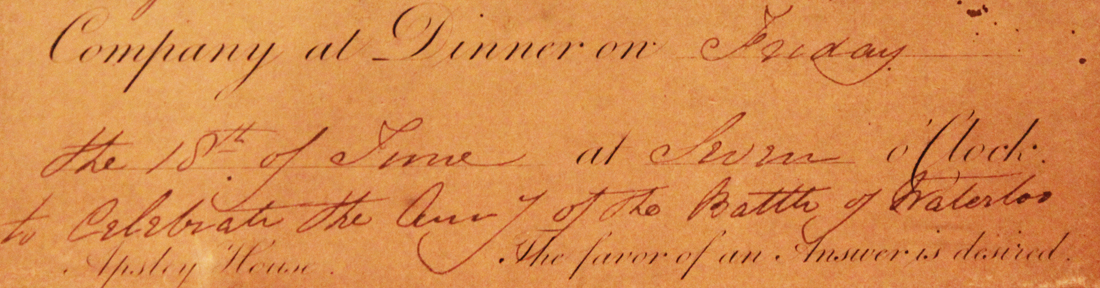 Company at Dinner on Friday
the 18th of June at Seven o'Clock.
to Celebrate the Anny of the Battle of Waterloo
Apsley House. The favor of an Answer is desired.